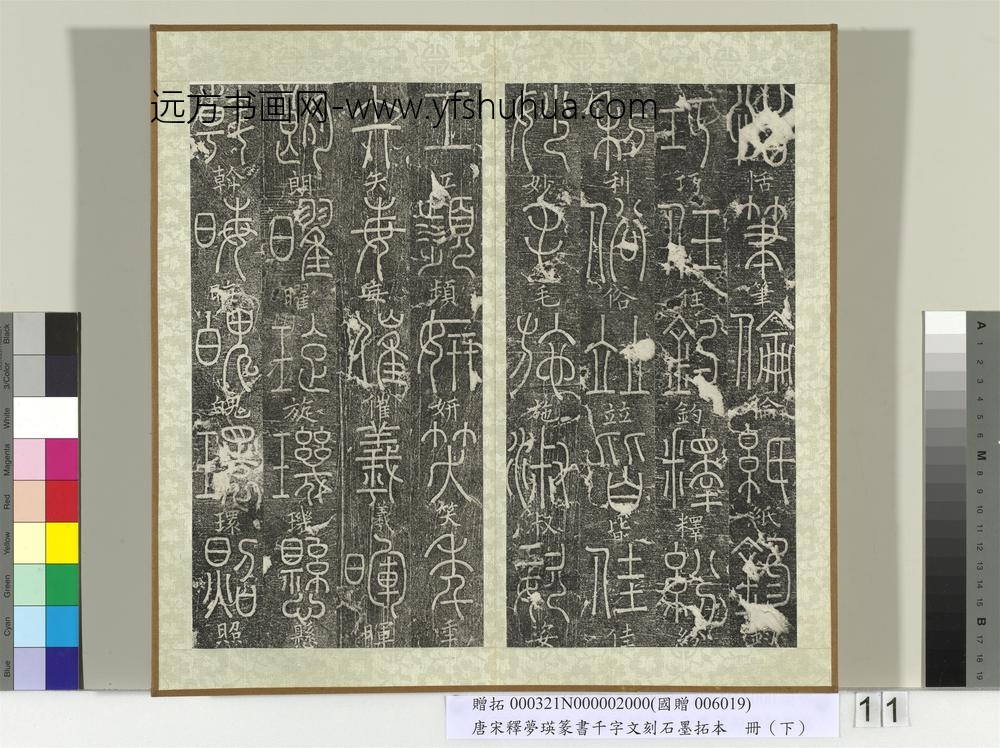 恬筆倫紙鈞
巧任鈞釋紛
利俗竝皆佳
妙毛施淑姿
工頻妍笑年
矢每催羲暉
朗曜旋璣懸
斡晦魄環照
远方书画网-www.yfshuhua.com
贈拓 000321N000002000(國贈 006019)
唐宋釋夢瑛篆書千字文刻石墨拓本 冊（下）
11
Black
3/Color
White
Magenta
Red
Yellow
Green
Cyan
Blue
A 1 2 3 4 5 6 M 8 9 10 11 12 13 14 15 B 17 18 19